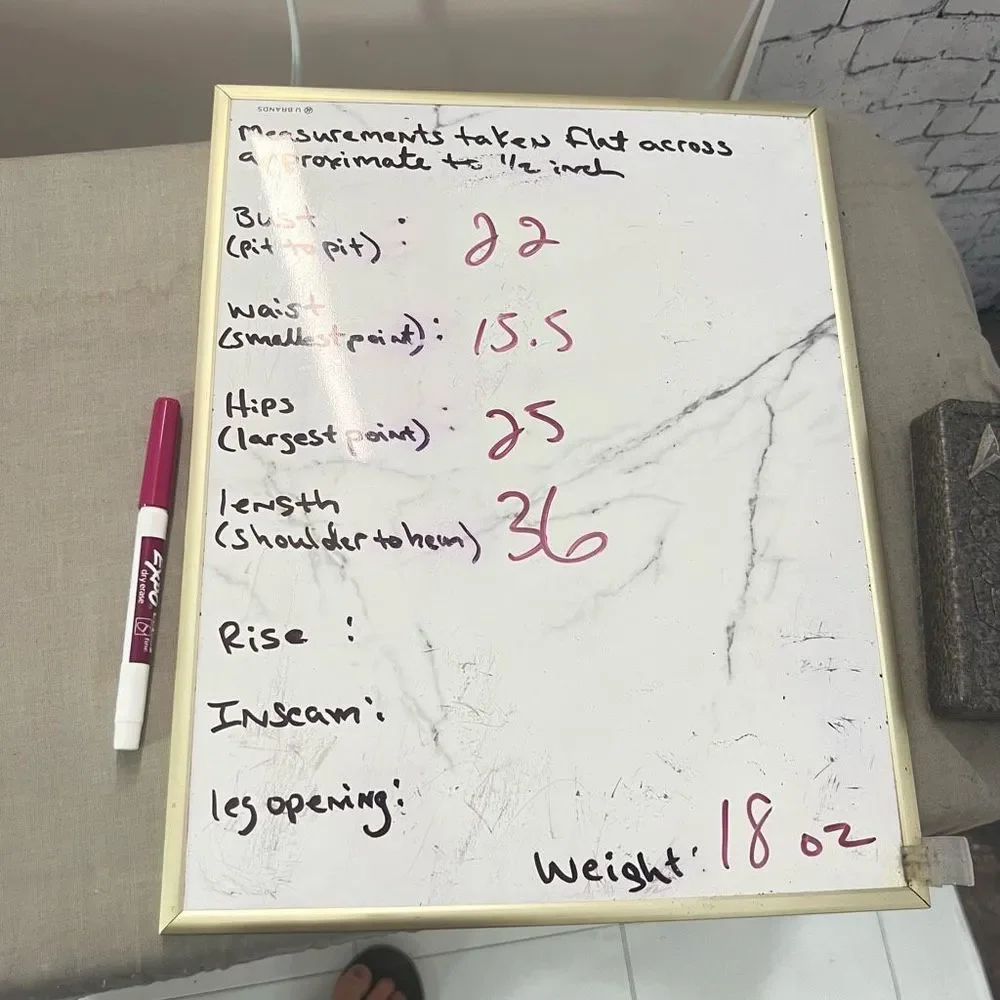 U BRANDS
Measurements taken flat across
approximate to 1/2 inch
Bust :
(pit to pit) : 22
waist
(smallest point): 15.5
Hips
(largest point) : 25
length
(shoulder to hem) 36
Rise :
Inseam:
leg opening:
Weight: 18 oz
EXPO
dry erase
fine